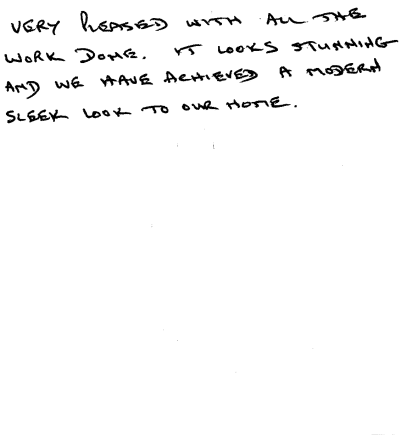 VERY PLEASED WITH ALL THE
WORK DONE. IT LOOKS STUNNING
AND WE HAVE ACHIEVED A MODERN
SLEEK LOOK TO OUR HOME.